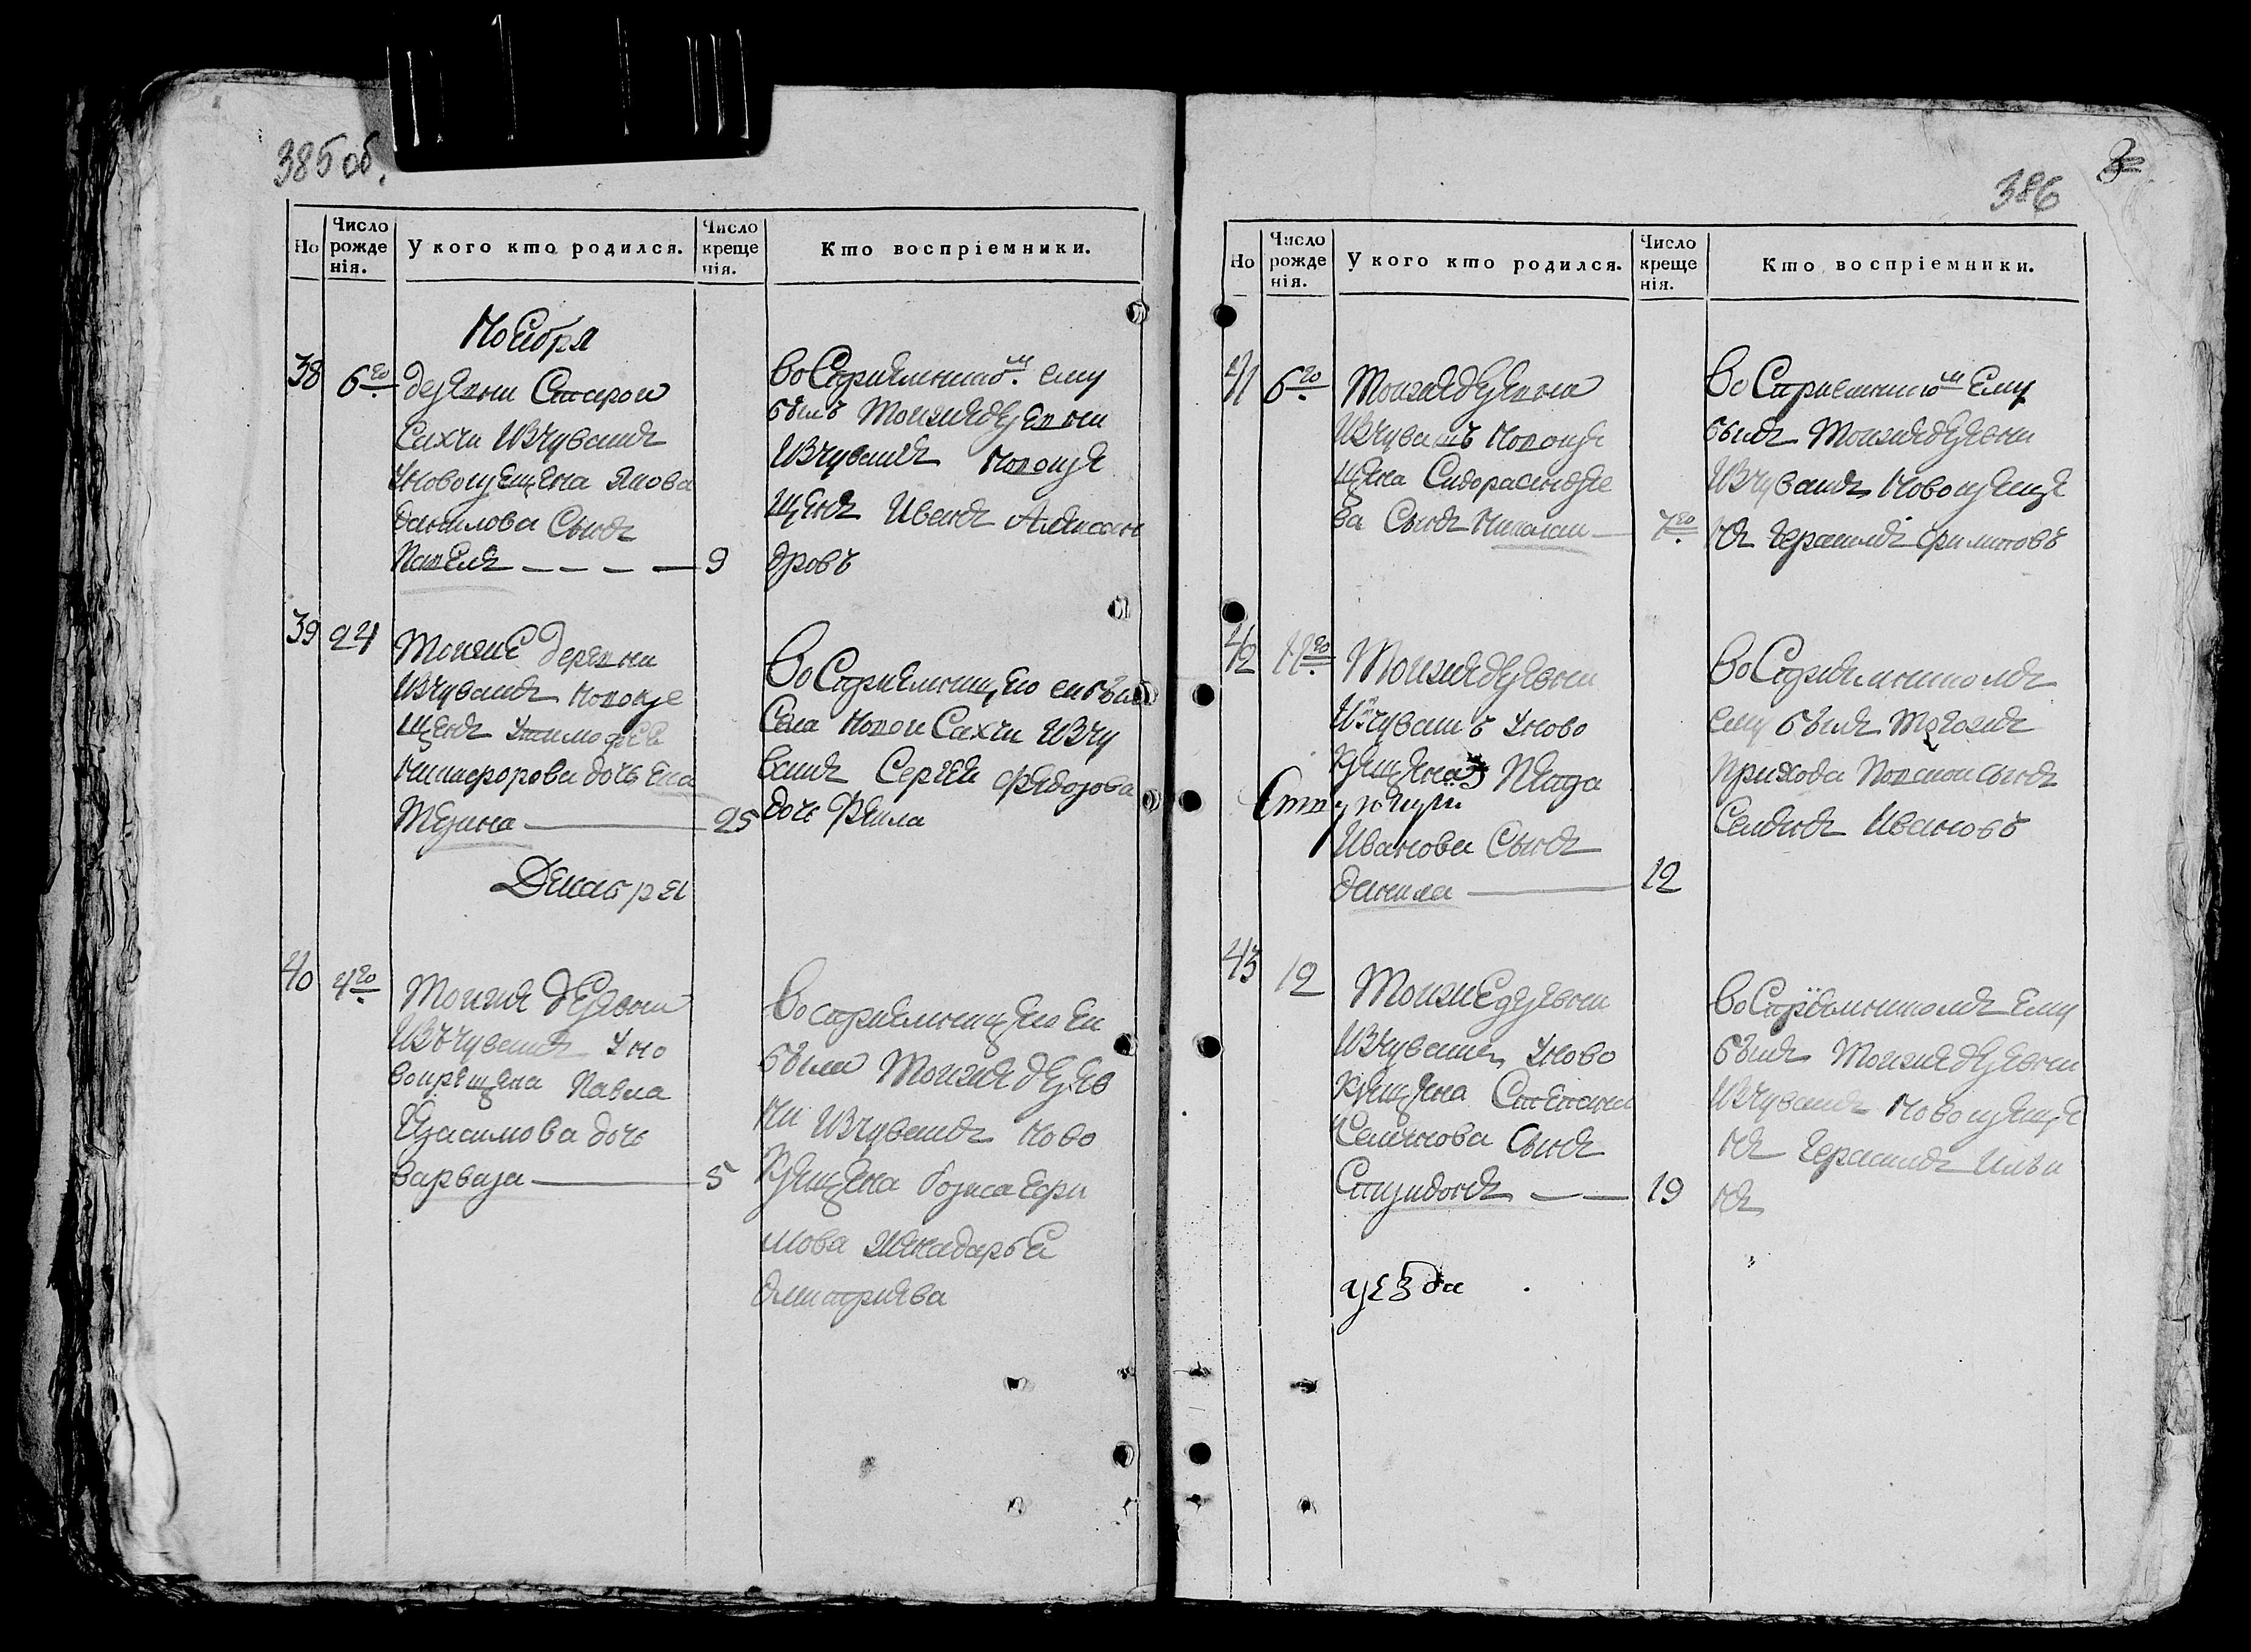 385 об.
Но
Число рожде нія.
У кого кто родился.
Число креще нія.
Кто воспріемники.
Ноебря
38
6го
деревни Старои
Сахчи Изчувашъ
Уновокрещена Якова
данилова Сынъ
Павелъ
9
восприемником ему
былъ Тоижедеревни
Изчувашъ Новокре
щенъ Иванъ Алексан
дровъ
39
24
Тоиже деревни
Изчувашъ Новокре
щенъ Утимофея
Никифорова дочь Ека
терина
25
Восприемницею еи была
Села Новои Сахчи Изчу
вашъ Сергея Федорова
дочь Фекла
Декабря
40
4го
Тоиже деревни
Изъчувашъ Уно
вокрещена Павла
Герасимова дочь
варвара
5
восприемницею еи
была Тоиже дерев
ни Изчувашъ Ново
крещена бориса Ефи
мова женадарья
дмитриева
386
Но
Число рожде нія.
У кого кто родился.
Число креще нія.
Кто воспріемники.
41
6го
Тоижедеревни
Изчувашъ Новокре
щена Сидораандрее
ва Сынъ Николаи
7го
восприемником Ему
былъ Тоижедеревни
Изчувашъ Новокреще
нъ Герасимъ филиповъ
42
11го
Тоижедеревни
Изчувашъ Уново
крещена
Иванова Сынъ
данила
12
восприемникомъ
ему былъ Тогожъ
прихода
Ивановъ
43
12
Тоижедеревни
Изчувашъ Уново
крещена Степана
Семенова Сынъ
Спиридонъ
19
восприемникомъ Ему
былъ Тоижедеревни
Изчувашъ Новокреще
нъ Герасимъ Ильи
нъ
уезда